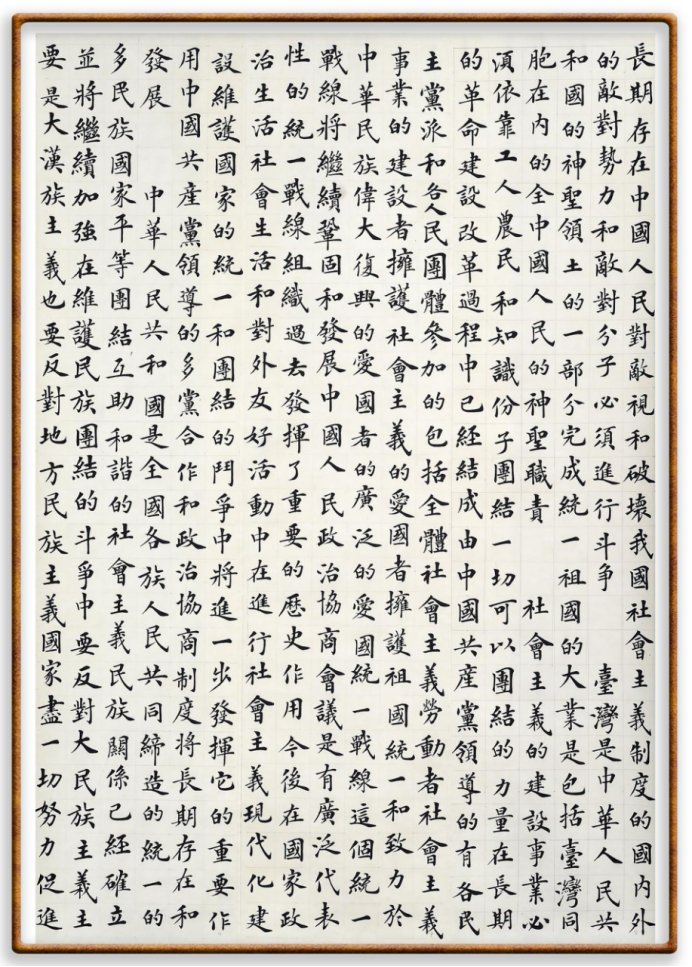 長期存在中國人民對敵視和破壞我國社會主義制度的國內外
的敵對勢力和敵對分子必須進行斗爭　臺灣是中華人民共
和國的神聖領土的一部分完成統一祖國的大業是包括臺灣同
胞在內的全中國人民的神聖職責　社會主義的建設事業必
湏依靠工人農民和知識份子團結一切可以團結的力量在長期
的革命建設改革過程中已經結成由中國共産黨領導的有各民
主黨派和各人民團體參加的包括全體社會主義勞動者社會主義
事業的建設者擁護社會主義的愛國者擁護祖國統一和致力於
中華民族偉大復興的愛國者的廣泛的愛國統一戰線這個統一
戰線將繼續鞏固和發展中國人民政治協商會議是有廣泛代表
性的統一戰線組織過去發揮了重要的歷史作用今後在國家政
治生活社會生活和對外友好活動中在進行社會主義現代化建
設維護國家的統一和團結的鬥爭中將進一步發揮它的重要作
用中國共産黨領導的多黨合作和政治協商制度將長期存在和
發展　中華人民共和國是全國各族人民共同締造的統一的
多民族國家平等團結互助和諧的社會主義民族關係已經確立
並將繼續加強在維護民族團結的斗爭中要反對大民族主義主
要是大漢族主義也要反對地方民族主義國家盡一切努力促進